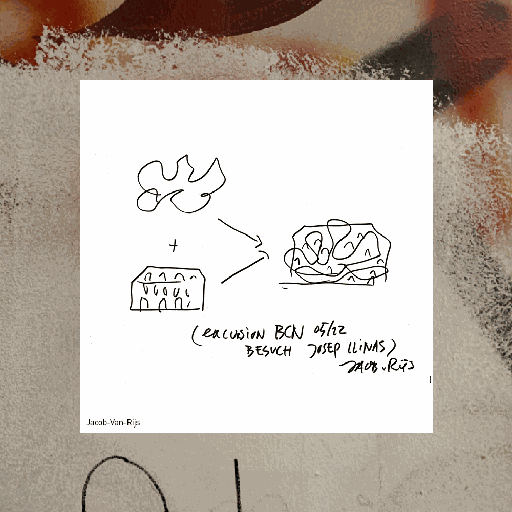 +
(excusion BCN 05/22
BESUCH JOSEP LLiNAS)
JACOB v. Rijs
Jacob-Van-Rijs